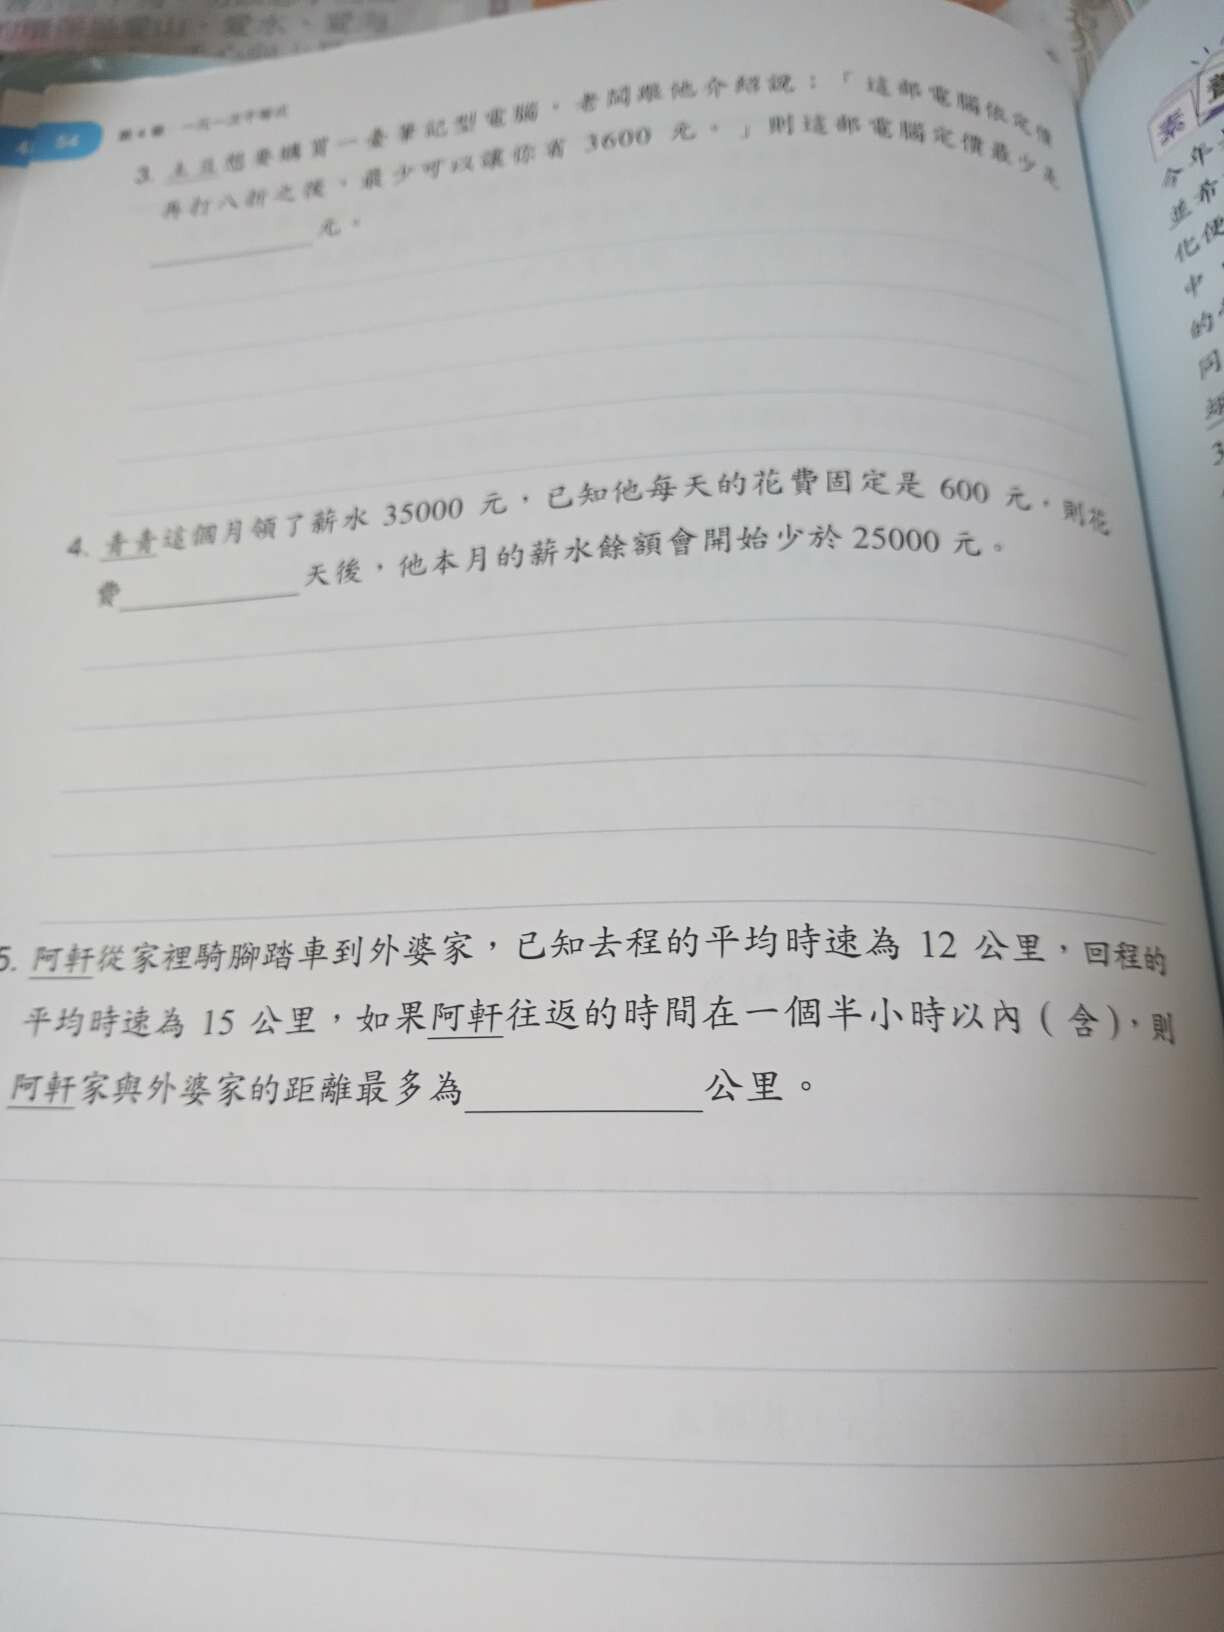 54
第4章 一元一次不等式
3. 土豆想要購買一臺筆記型電腦,老闆跟他介紹說:「這部電腦依定價
再打八折之後,最少可以讓你省 3600 元。」則這部電腦定價最少是
元。
4. 青青這個月領了薪水 35000 元,已知他每天的花費固定是 600 元,則花
費 天後,他本月的薪水餘額會開始少於 25000 元。
5. 阿軒從家裡騎腳踏車到外婆家,已知去程的平均時速為 12 公里,回程的
平均時速為 15 公里,如果阿軒往返的時間在一個半小時以內(含),則
阿軒家與外婆家的距離最多為 公里。
素
今年
並希
化便
中
的
同